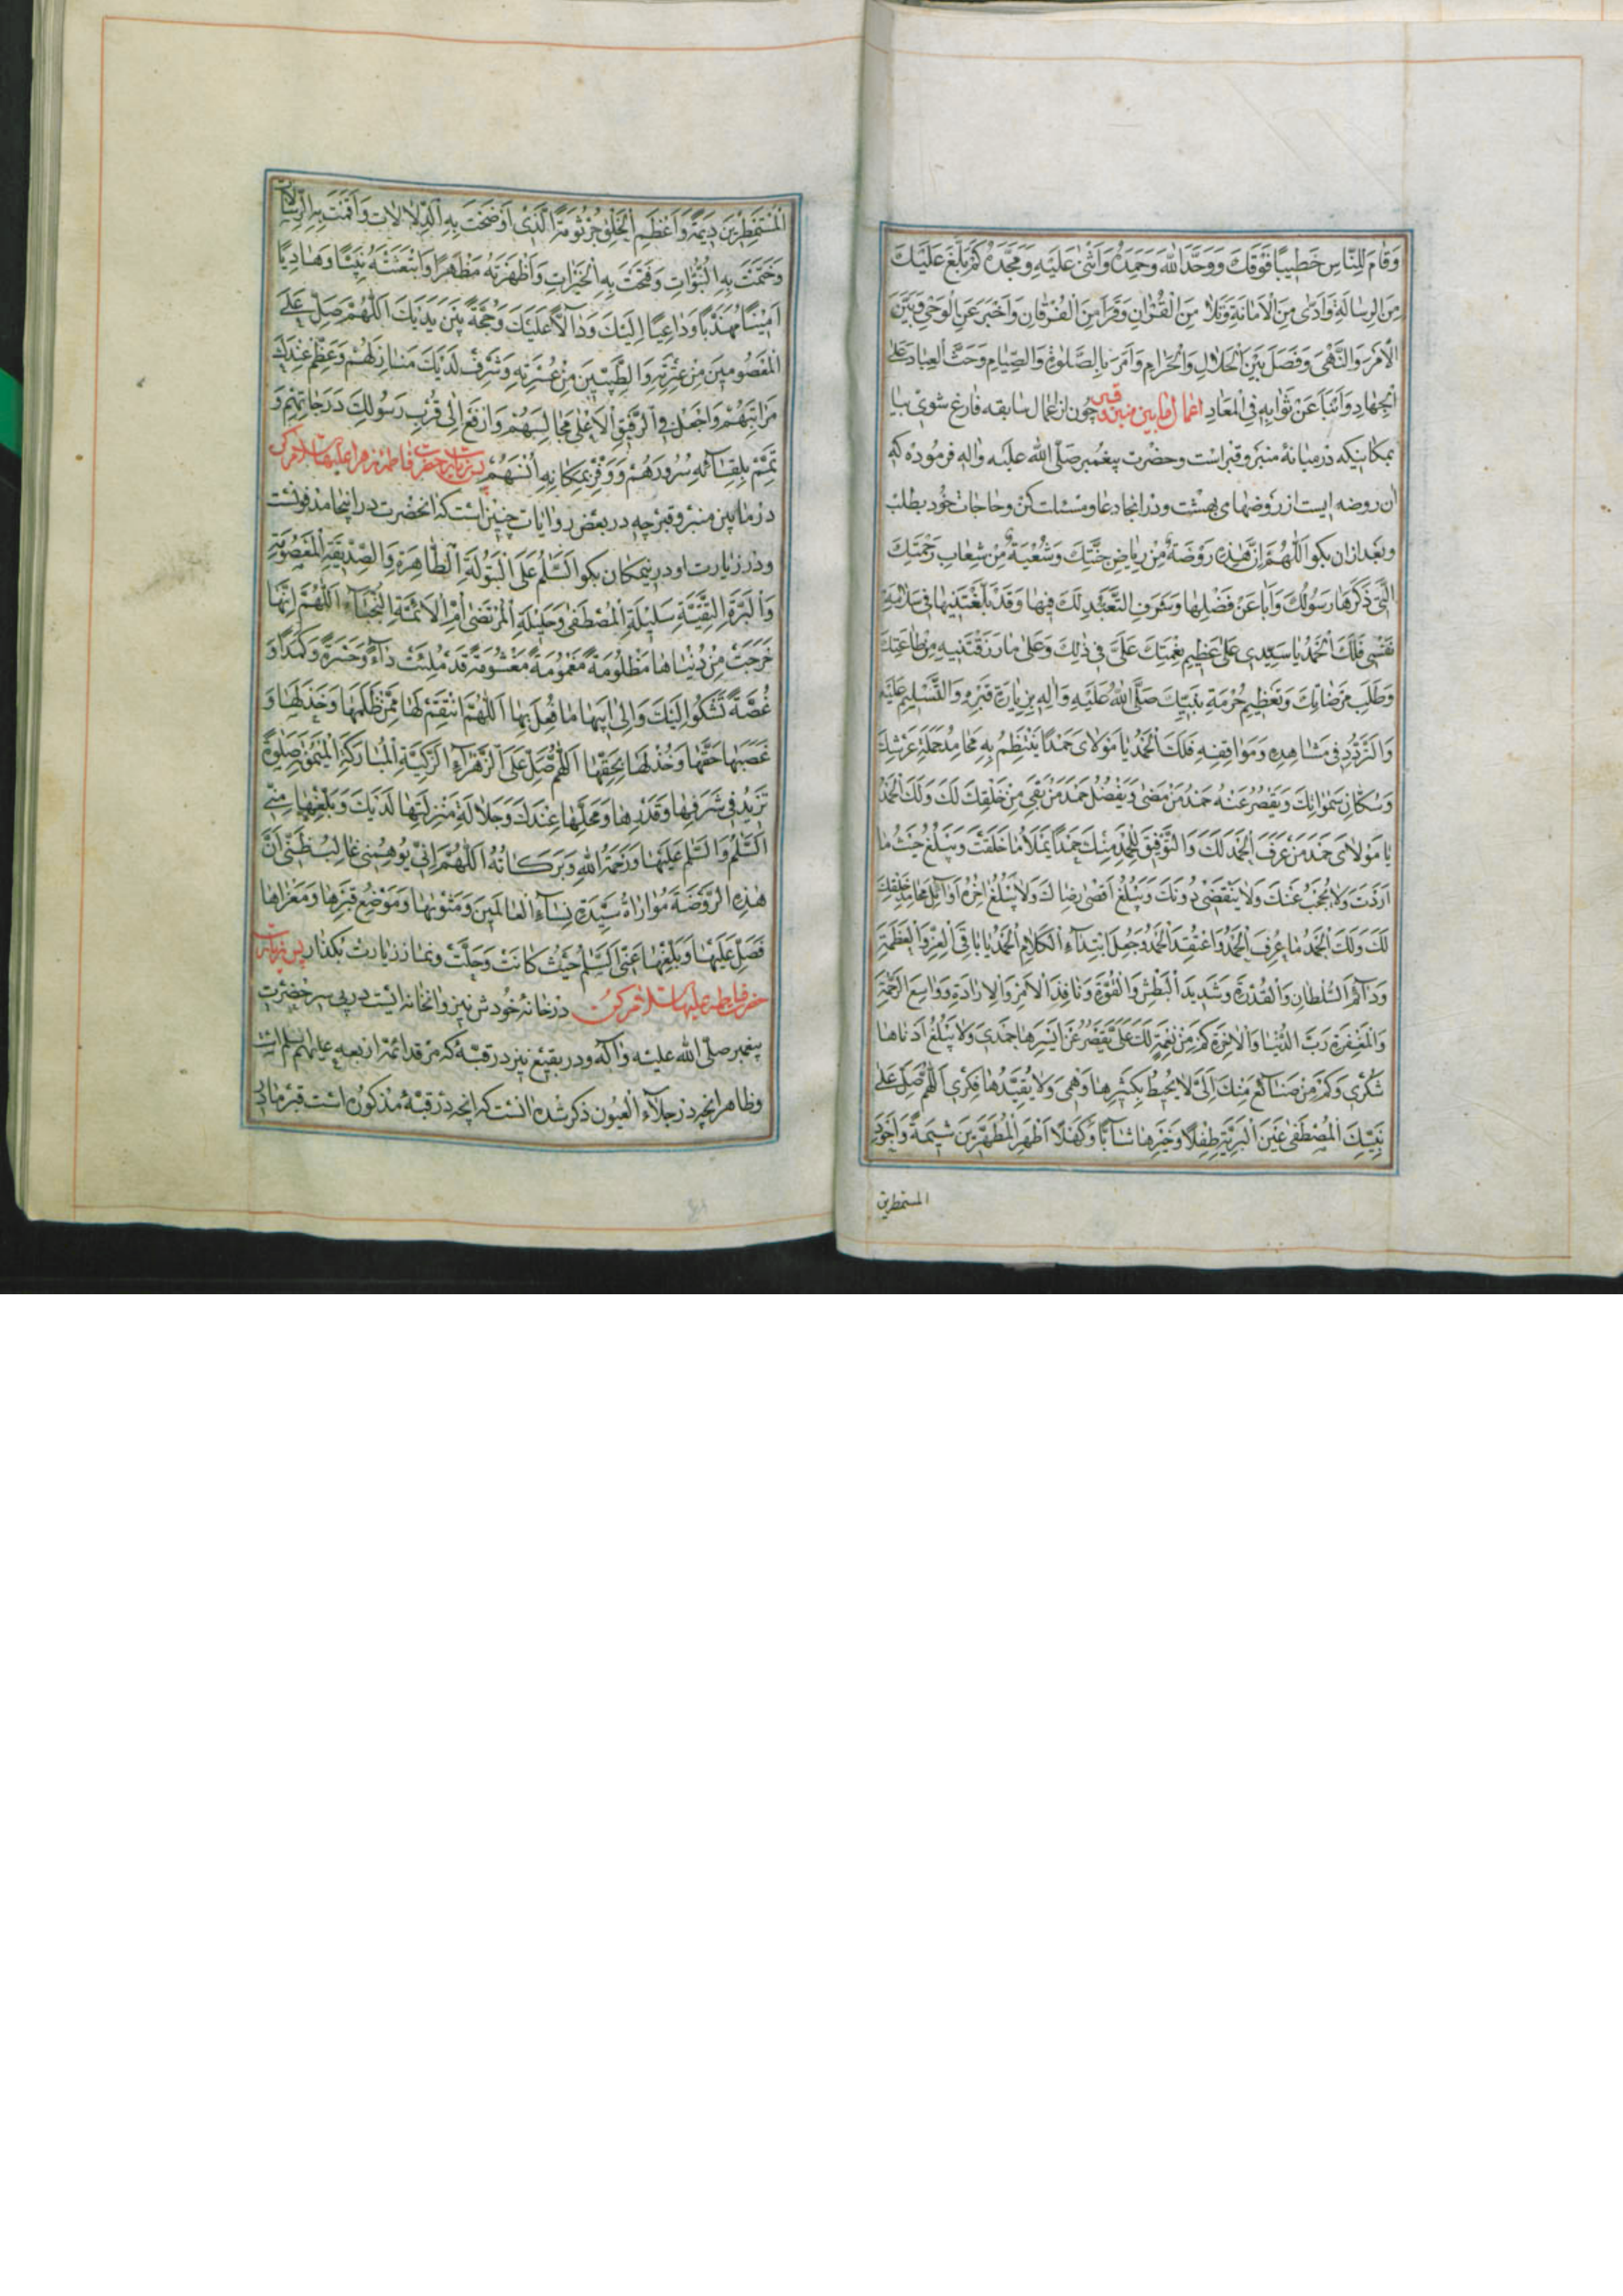 وَقامَ لِلنّاسِ خَطيبًا فَوقَكَ وَوَحَّدَ اللهَ وَحَمِدَهُ وَاَثنى عَلَيهِ وَمَجَّدَهُ كَم بَلَّغَ عَلَيكَ
مِنَ الرِسالَةِ وَاَدّى مِنَ الاَمانَةِ وَتَلا مِنَ القُرانِ وَقَرَاَ مِنَ الفُرقانِ وَاَخبَرَ عَنِ الوَحيِ وَبَيَّنَ
الاَمرَ وَالنَّهيَ وَفَصَلَ بَينَ الحَلالِ وَالحَرامِ وَاَمَرَ بِالصَّلوةِ وَالصِّيامِ وَحَثَّ العِبادَ عَلَى
الجِهادِ وَاَنبَاَ عَن ثَوابِهِ فِي المَعادِ اعمال مابين منبر وقبر چون از اعمال سابقه فارغ شوی بیا
بمکانیکه در میانهٔ منبر و قبر است وحضرت پیغمبر صلّی الله علیه واله فرموده که
ان روضه ایست از روضهای بهشت ودر انجا دعا ومسئلت کن وحاجات خود بطلب
وبعد ازان بکو اَللّهُمَّ اِنَّ هذِهِ رَوضَةٌ مِن رِياضِ جَنَّتِكَ وَشُعبَةٌ مِن شِعابِ رَحمَتِكَ
الَّتي ذَكَرَها رَسولُكَ وَاَبانَ عَن فَضلِها وَشَرَفِ التَّعَبُّدِ لَكَ فيها وَقَد بَلَّغتَنيها في سَلامَةِ
نَفسي فَلَكَ الحَمدُ يا سَيِّدي عَلى عَظيمِ نِعمَتِكَ عَلَيَّ في ذلِكَ وَعَلى ما رَزَقتَنيهِ مِن طاعَتِكَ
وَطَلَبِ مَرضاتِكَ وَتَعظيمِ حُرمَةِ نَبِيِّكَ صَلَّى اللهُ عَلَيهِ وَالِهِ بِزِيارَةِ قَبرِهِ وَالتَّسليمِ عَلَيهِ
وَالتَّرَدُّدِ في مَشاهِدِهِ وَمَواقِفِهِ فَلَكَ الحَمدُ يا مَولايَ حَمدًا يَنتَظِمُ بِهِ مَحامِدُ حَمَلَةِ عَرشِكَ
وَسُكّانِ سَمواتِكَ وَيَقصُرُ عَنهُ حَمدُ مَن مَضى وَيَفضُلُ حَمدَ مَن بَقِيَ مِن خَلقِكَ لَكَ وَلَكَ الحَمدُ
يا مَولايَ حَمدَ مَن عَرَفَ الحَمدَ لَكَ وَالتَّوفيقَ لِلحَمدِ مِنكَ حَمدًا يَملَاُ ما خَلَقتَ وَيَبلُغُ حَيثُ ما
اَرَدتَ وَلا يُحجَبُ عَنكَ وَلا يَنقَضي دونَكَ وَيَبلُغُ اَقصى رِضاكَ وَلا يَبلُغُ اخِرَهُ اَوائِلُ مَحامِدِ خَلقِكَ
لَكَ وَلَكَ الحَمدُ ما عُرِفَ الحَمدُ وَاعتُقِدَ الحَمدُ وَجُعِلَ ابتِداءُ الكَلامِ الحَمدُ يا باقِيَ العِزِّ وَالعَظَمَةِ
وَدائِمَ السُّلطانِ وَالقُدرَةِ وَشَديدَ البَطشِ وَالقُوَّةِ وَنافِذَ الاَمرِ وَالاِرادَةِ وَواسِعَ الرَّحمَةِ
وَالمَغفِرَةِ رَبَّ الدُّنيا وَالاخِرَةِ كَم مِن نِعمَةٍ لَكَ عَلَيَّ يَقصُرُ عَن اَيسَرِها حَمدي وَلا يَبلُغُ اَدناها
شُكري وَكَم مِن صَنائِعَ مِنكَ اِلَيَّ لا يُحيطُ بِكَثيرِها وَهمي وَلا يُقَيِّدُها فِكري اَللّهُمَّ صَلِّ عَلى
نَبِيِّكَ المُصطَفى عَينِ البَرِيَّةِ طِفلًا وَخَيرِها شابًّا وَكَهلًا اَطهَرِ المُطَهَّرينَ شيمَةً وَاَجوَدِ
المستمطرین
المُستَمطِرينَ ديمَةً وَاَعظَمِ الخَلقِ جُرثومَةً الَّذي اَوضَحتَ بِهِ الدِّلالاتِ وَاَقَمتَ بِهِ الرِّسالاتِ
وَخَتَمتَ بِهِ النُّبُوّاتِ وَفَتَحتَ بِهِ الخَيراتِ وَاَظهَرتَهُ مَظهَرًا وَابتَعَثتَهُ نَبِيًّا وَهادِيًا
اَمينًا مُهَذَّبًا وَداعِيًا اِلَيكَ وَدالًّا عَلَيكَ وَحُجَّةً بَينَ يَدَيكَ اَللّهُمَّ صَلِّ عَلَى
المَعصومينَ مِن عِترَتِهِ وَالطَّيِّبينَ مِن اُسرَتِهِ وَشَرِّف لَدَيكَ مَنازِلَهُم وَعَظِّم عِندَكَ
مَراتِبَهُم وَاجعَل فِي الرَّفيقِ الاَعلى مَجالِسَهُم وَارفَع اِلى قُربِ رَسولِكَ دَرَجاتِهِم وَ
تَمِّم بِلِقائِهِ سُرورَهُم وَوَفِّر بِمَكانِهِ اُنسَهُم پس زیارت حضرت فاطمه زهرا علیها سلام کن
در مابین منبر و قبر چه در بعض روایات چنین است که انحضرت در اینجا مدفونست
ودر زیارت او در نیمکان بکو اَلسَّلامُ عَلَى البَتولَةِ الطّاهِرَةِ وَالصِّدّيقَةِ المَعصومَةِ
وَالبَرَّةِ التَّقِيَّةِ سَليلَةِ المُصطَفى وَحَليلَةِ المُرتَضى اُمِّ الاَئِمَّةِ النُّجَباءِ اَللّهُمَّ اِنَّها
خَرَجَت مِن دُنياها مَظلومَةً مَغمومَةً مَغشومَةً قَد مُلِئَت داءً وَحَسرَةً وَكَمَدًا وَ
غُصَّةً تَشكو اِلَيكَ وَاِلى اَبيها ما فُعِلَ بِها اَللّهُمَّ انتَقِم لَها مِمَّن ظَلَمَها وَخَذَلَها وَ
غَصَبَها حَقَّها وَخُذ لَها بِحَقِّها اَللّهُمَّ صَلِّ عَلَى الزَّهراءِ الزَّكِيَّةِ المُبارَكَةِ المَيمونَةِ صَلوةً
تَزيدُ في شَرَفِها وَقَدرِها وَمَحَلِّها عِندَكَ وَجَلالَةِ مَنزِلَتِها لَدَيكَ وَبَلِّغها مِنّي
السَّلامَ وَالسَّلامُ عَلَيها وَرَحمَةُ اللهِ وَبَرَكاتُهُ اَللّهُمَّ اِنّي يوهِمُني غالِبُ ظَنّي اَنَّ
هذِهِ الرَّوضَةَ مُواراةُ سَيِّدَةِ نِساءِ العالَمينَ وَمَثواها وَمَوضِعُ قَبرِها وَمَغزاها
فَصَلِّ عَلَيها وَبَلِّغها عَنِّي السَّلامَ حَيثُ كانَت وَحَلَّت ونماز زیارت بکذار پس زیارت
حضرت فاطمه علیها سلام کن در خانهٔ خودش نیز وانخانه ایست در پی سر حضرت
پیغمبر صلّی الله علیه واله ودر بقیع نیز در قبّهٔ که مرقد ائمّهٔ اربعه علیهم سلم است
وظاهر انچه در جلاء العیون ذکر شده انست که انچه در قبّهٔ مذکوره است قبر مادر